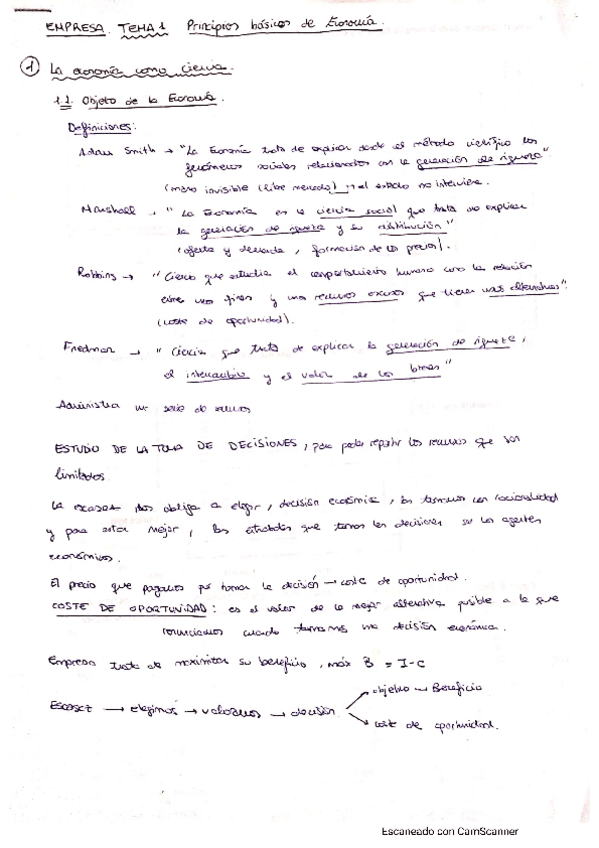 EMPRESA. TEMA 1 Principios básicos de Economía.
1 La economía como ciencia.
1.1. Objeto de la Economía.
Definiciones:
Adam Smith → "La Economía trata de explicar desde el método científico los
fenómenos sociales relacionados con la generación de riqueza"
(mano invisible (libre mercado) → el estado no interviene.
Marshall → "La Economía es la ciencia social que trata de explicar
la generación de riqueza y su distribución"
(oferta y demanda, formación de los precios).
Robbins → "Ciencia que estudia el comportamiento humano como la relación
entre unos fines y unos recursos escasos que tienen usos alternativos".
(coste de oportunidad).
Friedman → "Ciencia que trata de explicar la generación de riqueza,
el intercambio y el valor de los bienes"
Administra una serie de recursos
ESTUDIO DE LA TOMA DE DECISIONES, para poder repartir los recursos que son
limitados.
La escasez nos obliga a elegir, decisión económica, las tomamos con racionalidad
y para estar mejor, las entidades que toman las decisiones son los agentes
económicos.
El precio que pagamos por tomar la decisión → coste de oportunidad.
COSTE DE OPORTUNIDAD: es el valor de la mejor alternativa posible a la que
renunciamos cuando tomamos una decisión económica.
Empresa trata de maximizar su beneficio, máx B = I-C
Escasez → elegimos → valoramos → decisión
objetivo → Beneficio
coste de oportunidad.
Escaneado con CamScanner